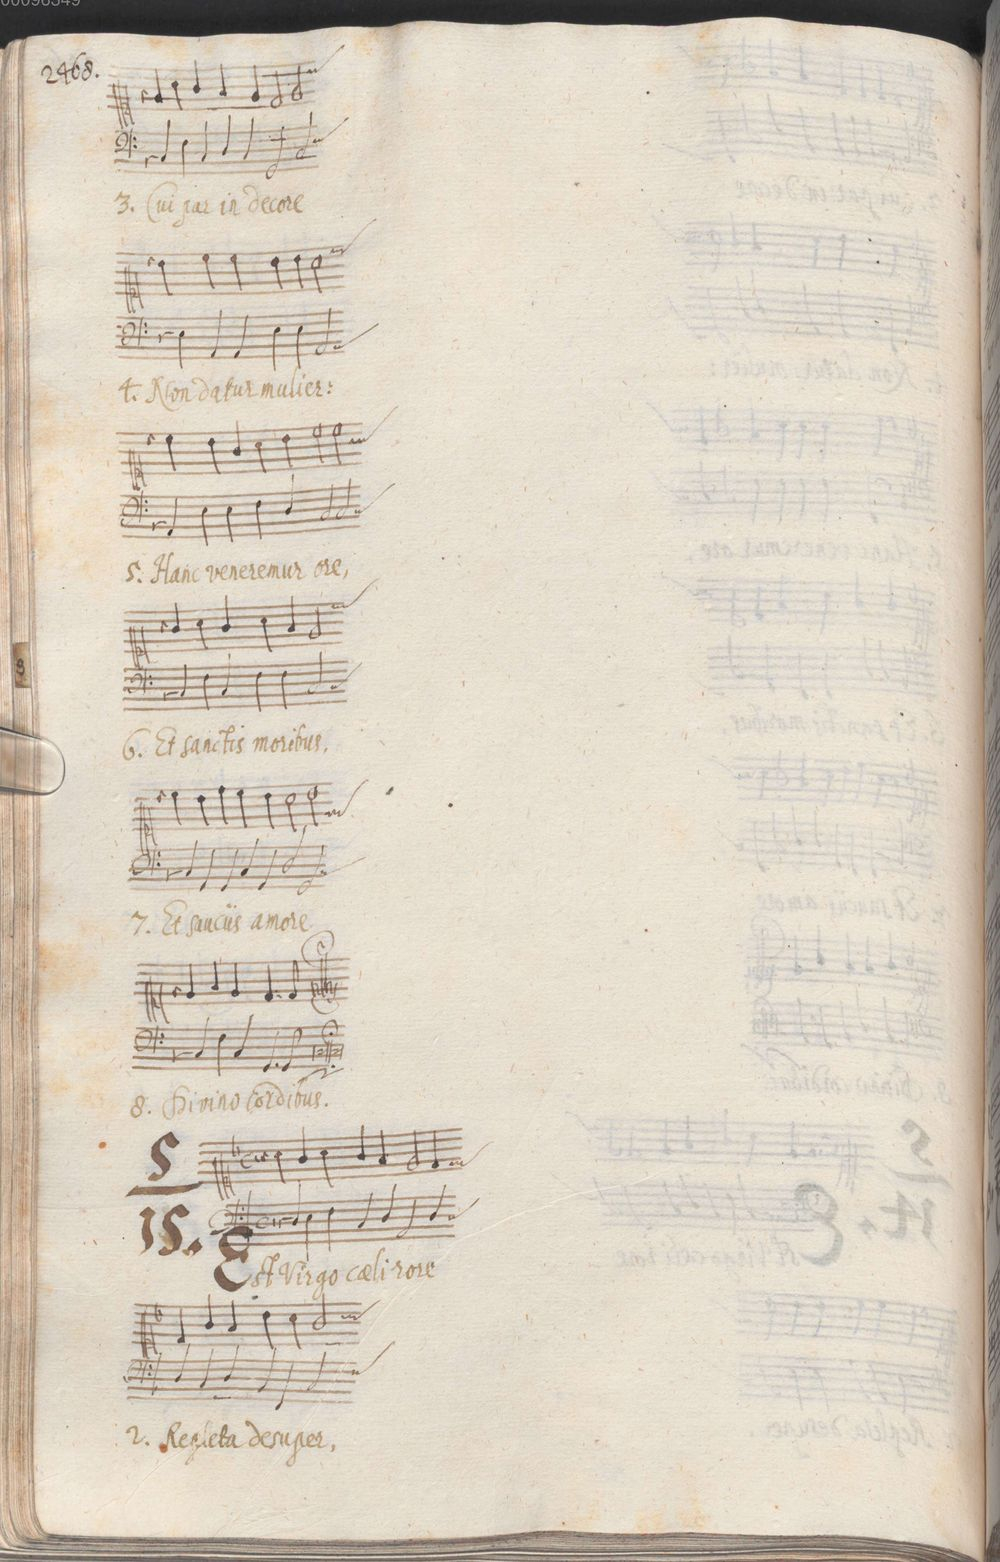 00096349
2468.
3. Cui par in decore
4. Non datur mulier:
5. Hanc veneremur ore,
6. Et sanctis moribus,
7. Et sauciis amore
8. Divino cordibus.
5
15. Est Virgo cæli rore
2. Repleta desuper,